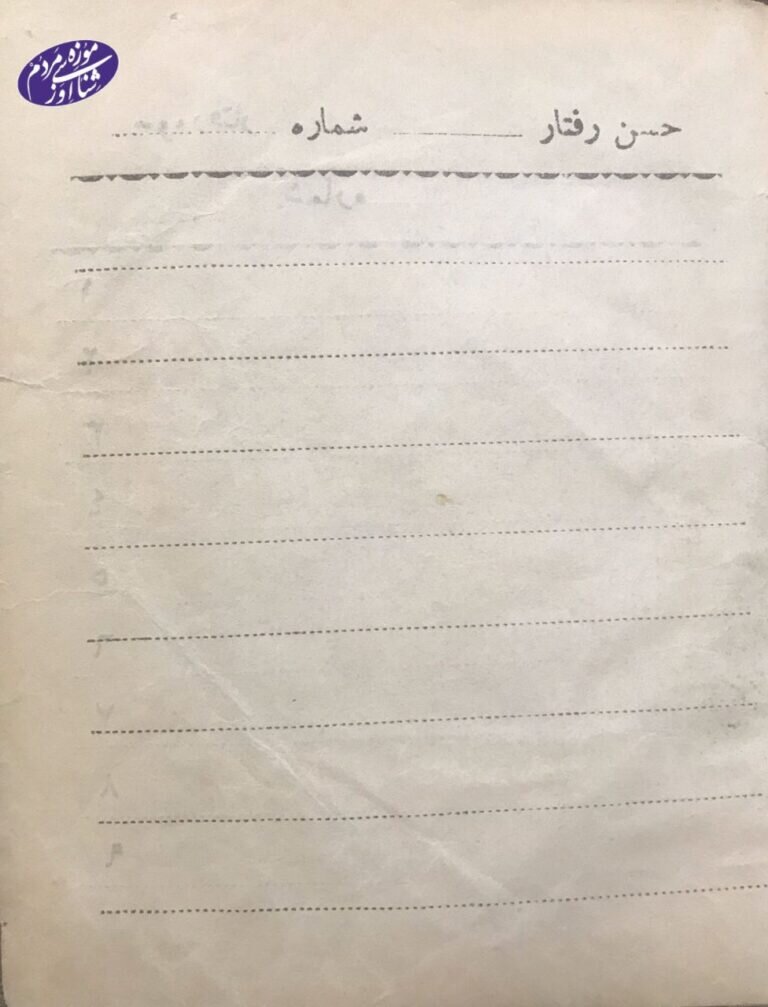 موزه‌ی مردم
شناسی اوز
حسن رفتار ........ شماره ........